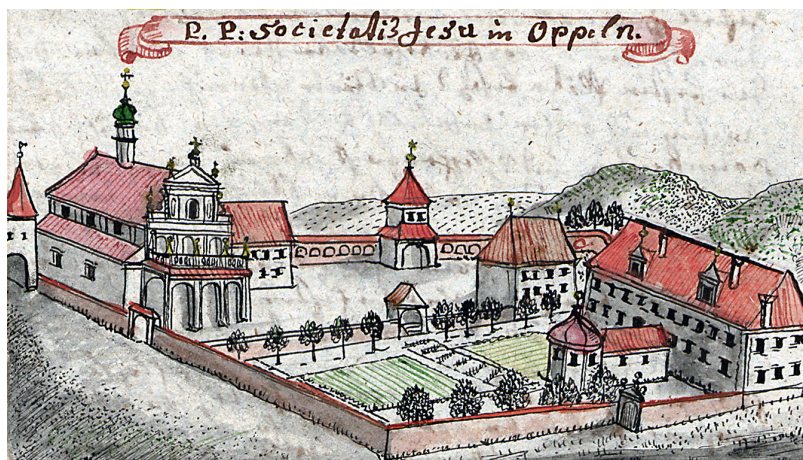 P. P: Societatis Jesu in Oppeln.